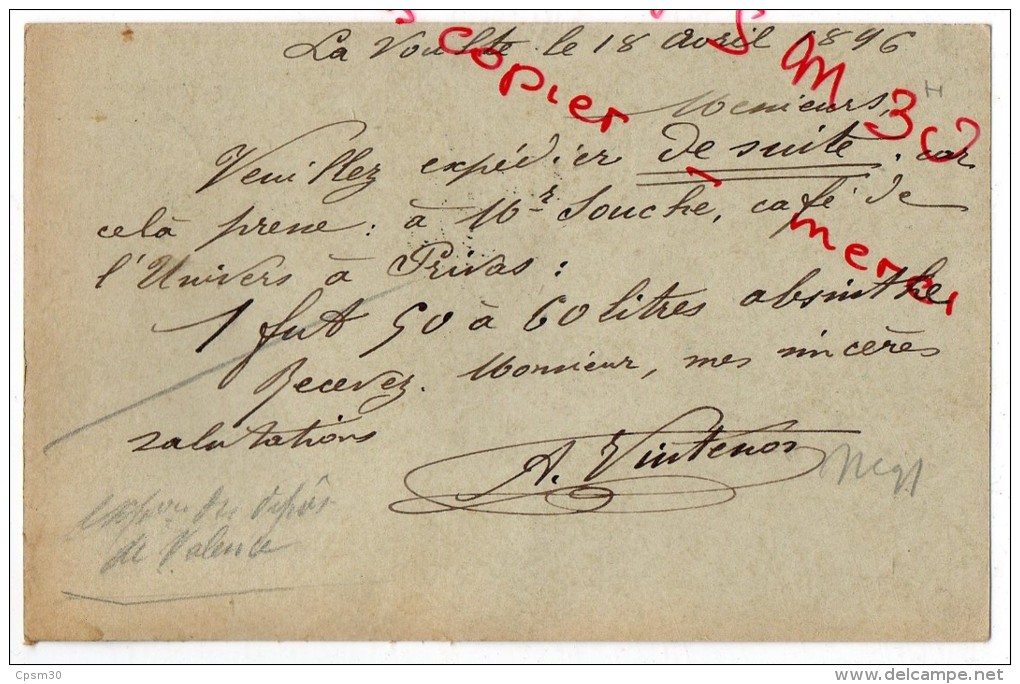 La Voulte le 18 avril 1896
Messieurs,
Veuillez expédier de suite, car
celà presse : à Mr Souche, café de
l'Univers à Privas :
1 fut 50 à 60 litres absinthe
Recevez Monsieur, mes sincères
salutations
A. Vintenon
expon du dépôt
de Valence
copier
M 30
merci
Cpsm30
www.delcampe.net